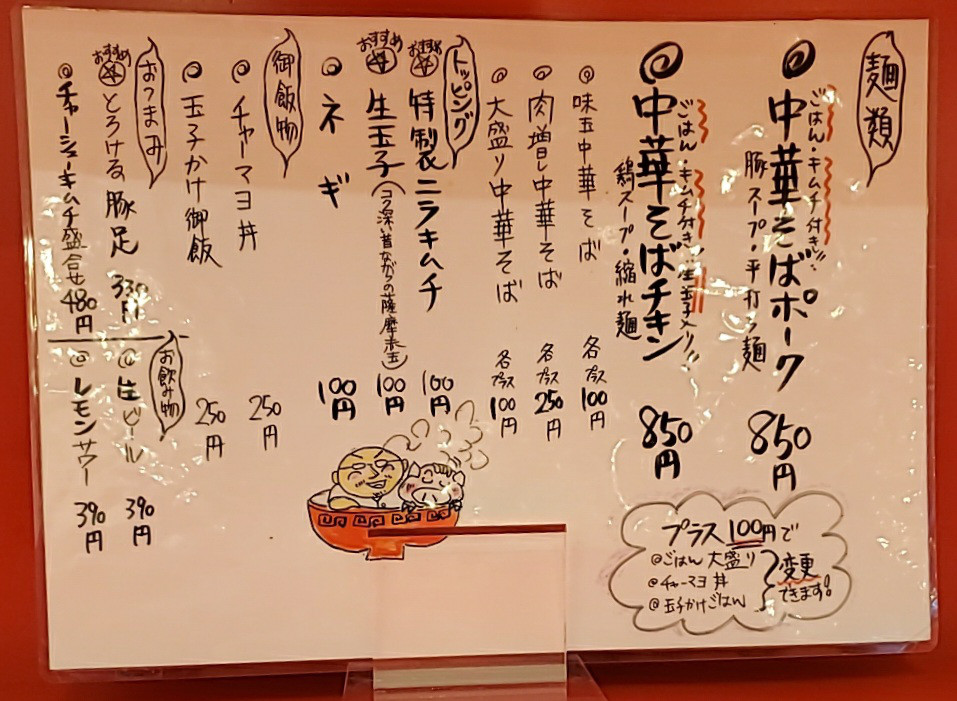 麺類
◎中華そばポーク 850円
ごはん・キムチ付き!!
豚スープ・平打ち麺
◎中華そばチキン 850円
ごはん・キムチ付き・生玉子入り!!
鶏スープ・縮れ麺
◎味玉中華そば 各プラス100円
◎肉増し中華そば 各プラス250円
◎大盛り中華そば 各プラス100円
トッピング
おすすめ 特製ニラキムチ 100円
おすすめ 生玉子(コク深い昔ながらの薩摩赤玉) 100円
◎ネギ 100円
御飯物
◎チャーマヨ丼 250円
◎玉子かけ御飯 250円
おつまみ
おすすめ とろける豚足 330円
◎チャーシューキムチ盛合せ 480円
お飲み物
◎生ビール 390円
◎レモンサワー 390円
プラス100円で
◎ごはん大盛り
◎チャーマヨ丼
◎玉子かけごはん
変更
できます。